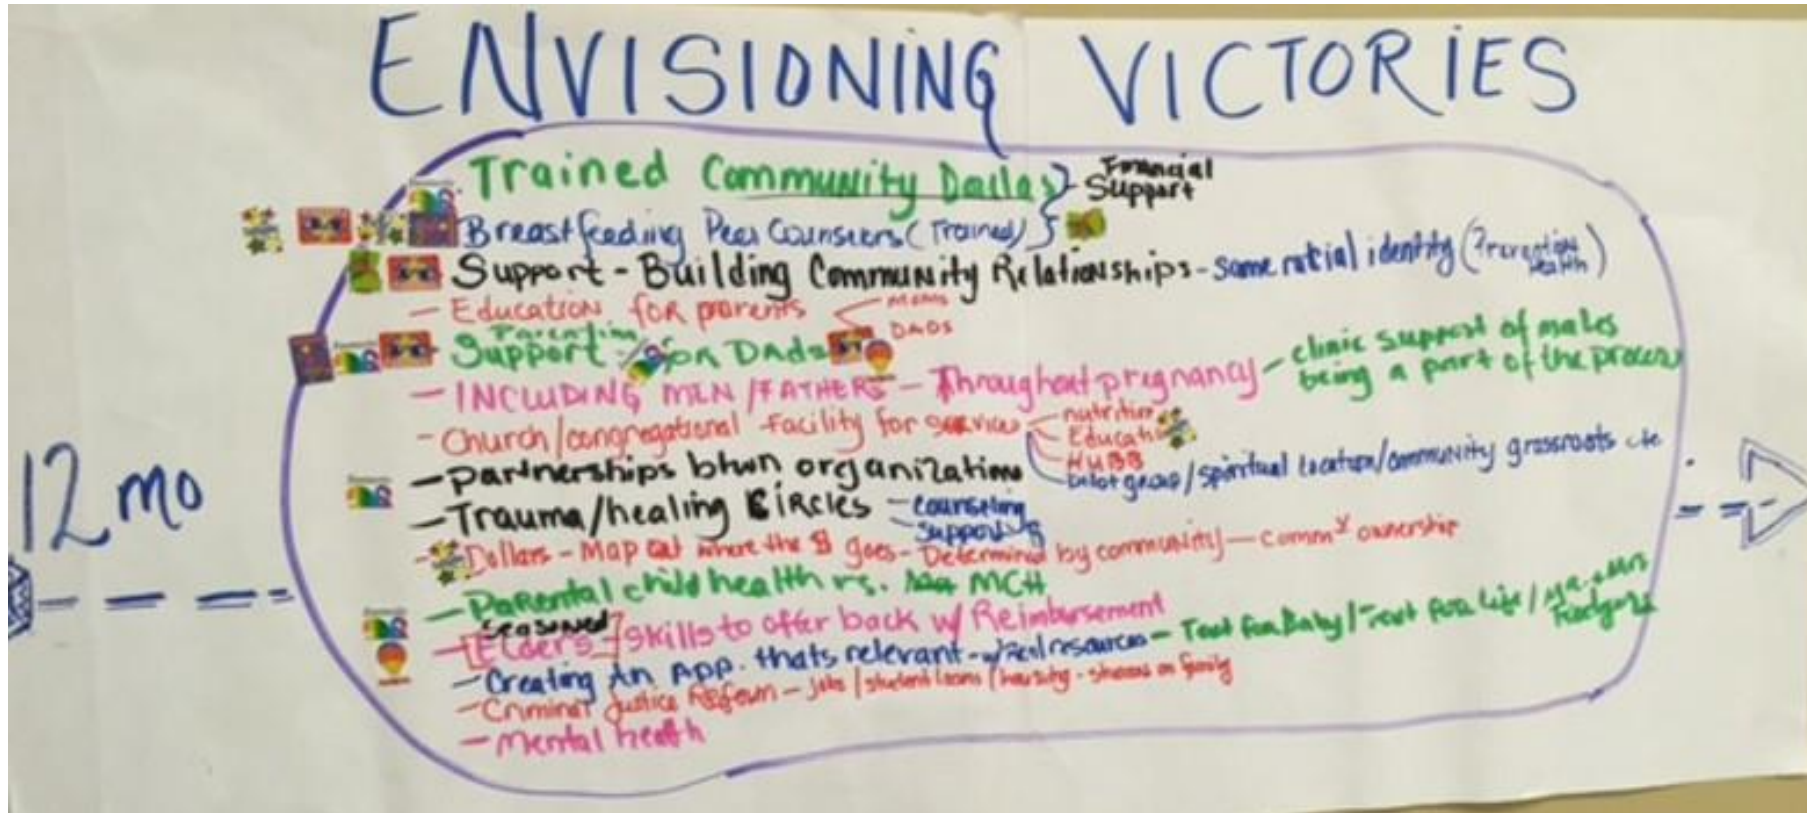 ENVISIONING VICTORIES
Trained Community Doulas } Financial Support
Breastfeeding Peer Counselers (Trained)
Support - Building Community Relationships - same racial identity (Health)
- Education for parents < moms DADS
Parenting
Support for DADs
- INCLUDING MEN/FATHERS - Throughout pregnancy - clinic support of males being a part of the process
- Church/congregational facility for services - nutrition
Education
HUBB
group/spiritual location/community grassroots etc
12 mo
- partnerships btwn organizations
- Trauma/healing CiRcles - counseling
- support
- Dollars - Map out where the $ goes - Determined by community - commty ownership
- Parental child health vs. MCH
seasoned
- [Elders] - skills to offer back w/ Reimbursement
- Creating An App. thats relevant - w/ Real resources - Text for Baby / Text for Life /
- Criminal Justice Reform - jobs / student loans / housing - stress on family
- Mental health